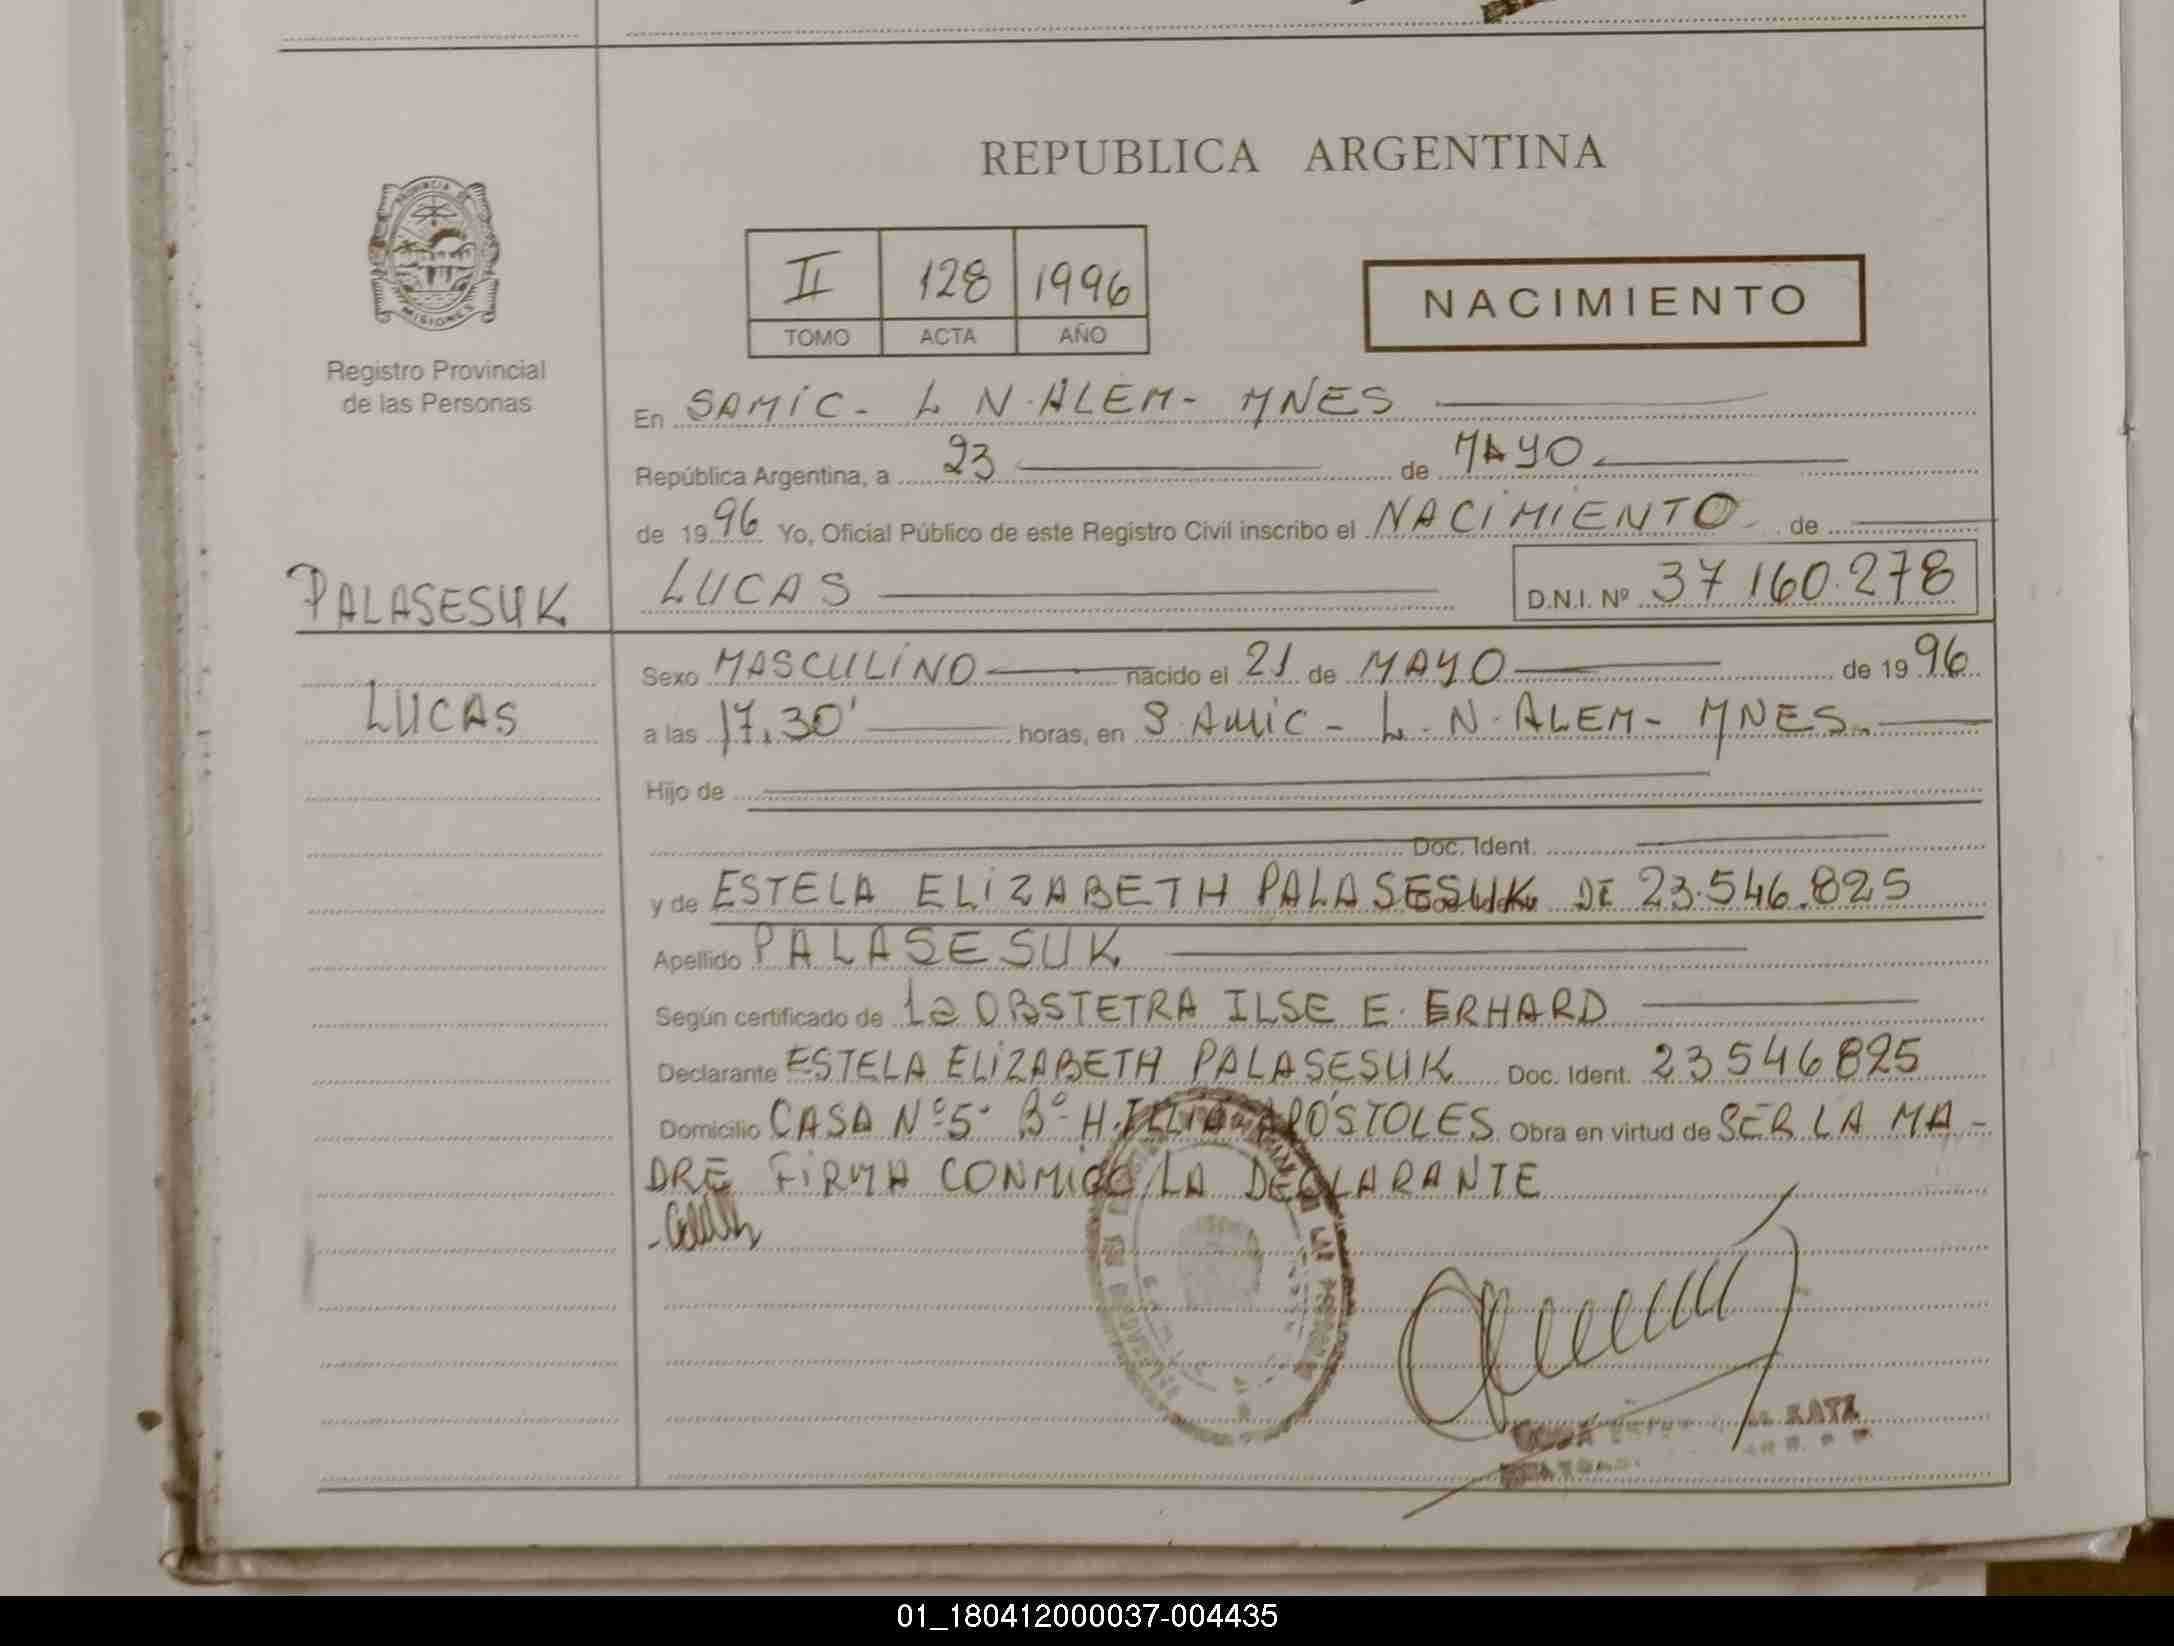 REPUBLICA ARGENTINA
PROVINCIA DE
MISIONES
Registro Provincial
de las Personas
II 128 1996
TOMO ACTA AÑO
NACIMIENTO
En SAMIC - L N. ALEM - MNES
República Argentina, a 23 de MAYO
de 1996 Yo, Oficial Público de este Registro Civil inscribo el NACIMIENTO de
PALASESUK
LUCAS
LUCAS D.N.I. Nº 37 160.278
Sexo MASCULINO nacido el 21 de MAYO de 1996
a las 17.30' horas, en S. AMIC - L. N. ALEM - MNES.
Hijo de
Doc. Ident.
y de ESTELA ELIZABETH PALASESUK DE 23.546.825
Apellido PALASESUK
Según certificado de La OBSTETRA ILSE E. ERHARD
Declarante ESTELA ELIZABETH PALASESUK Doc. Ident. 23546825
Domicilio CASA Nº 5 Bº H. ILLIA APÓSTOLES Obra en virtud de SER LA MA-
DRE FIRMA CONMIGO LA DECLARANTE
01_180412000037-004435